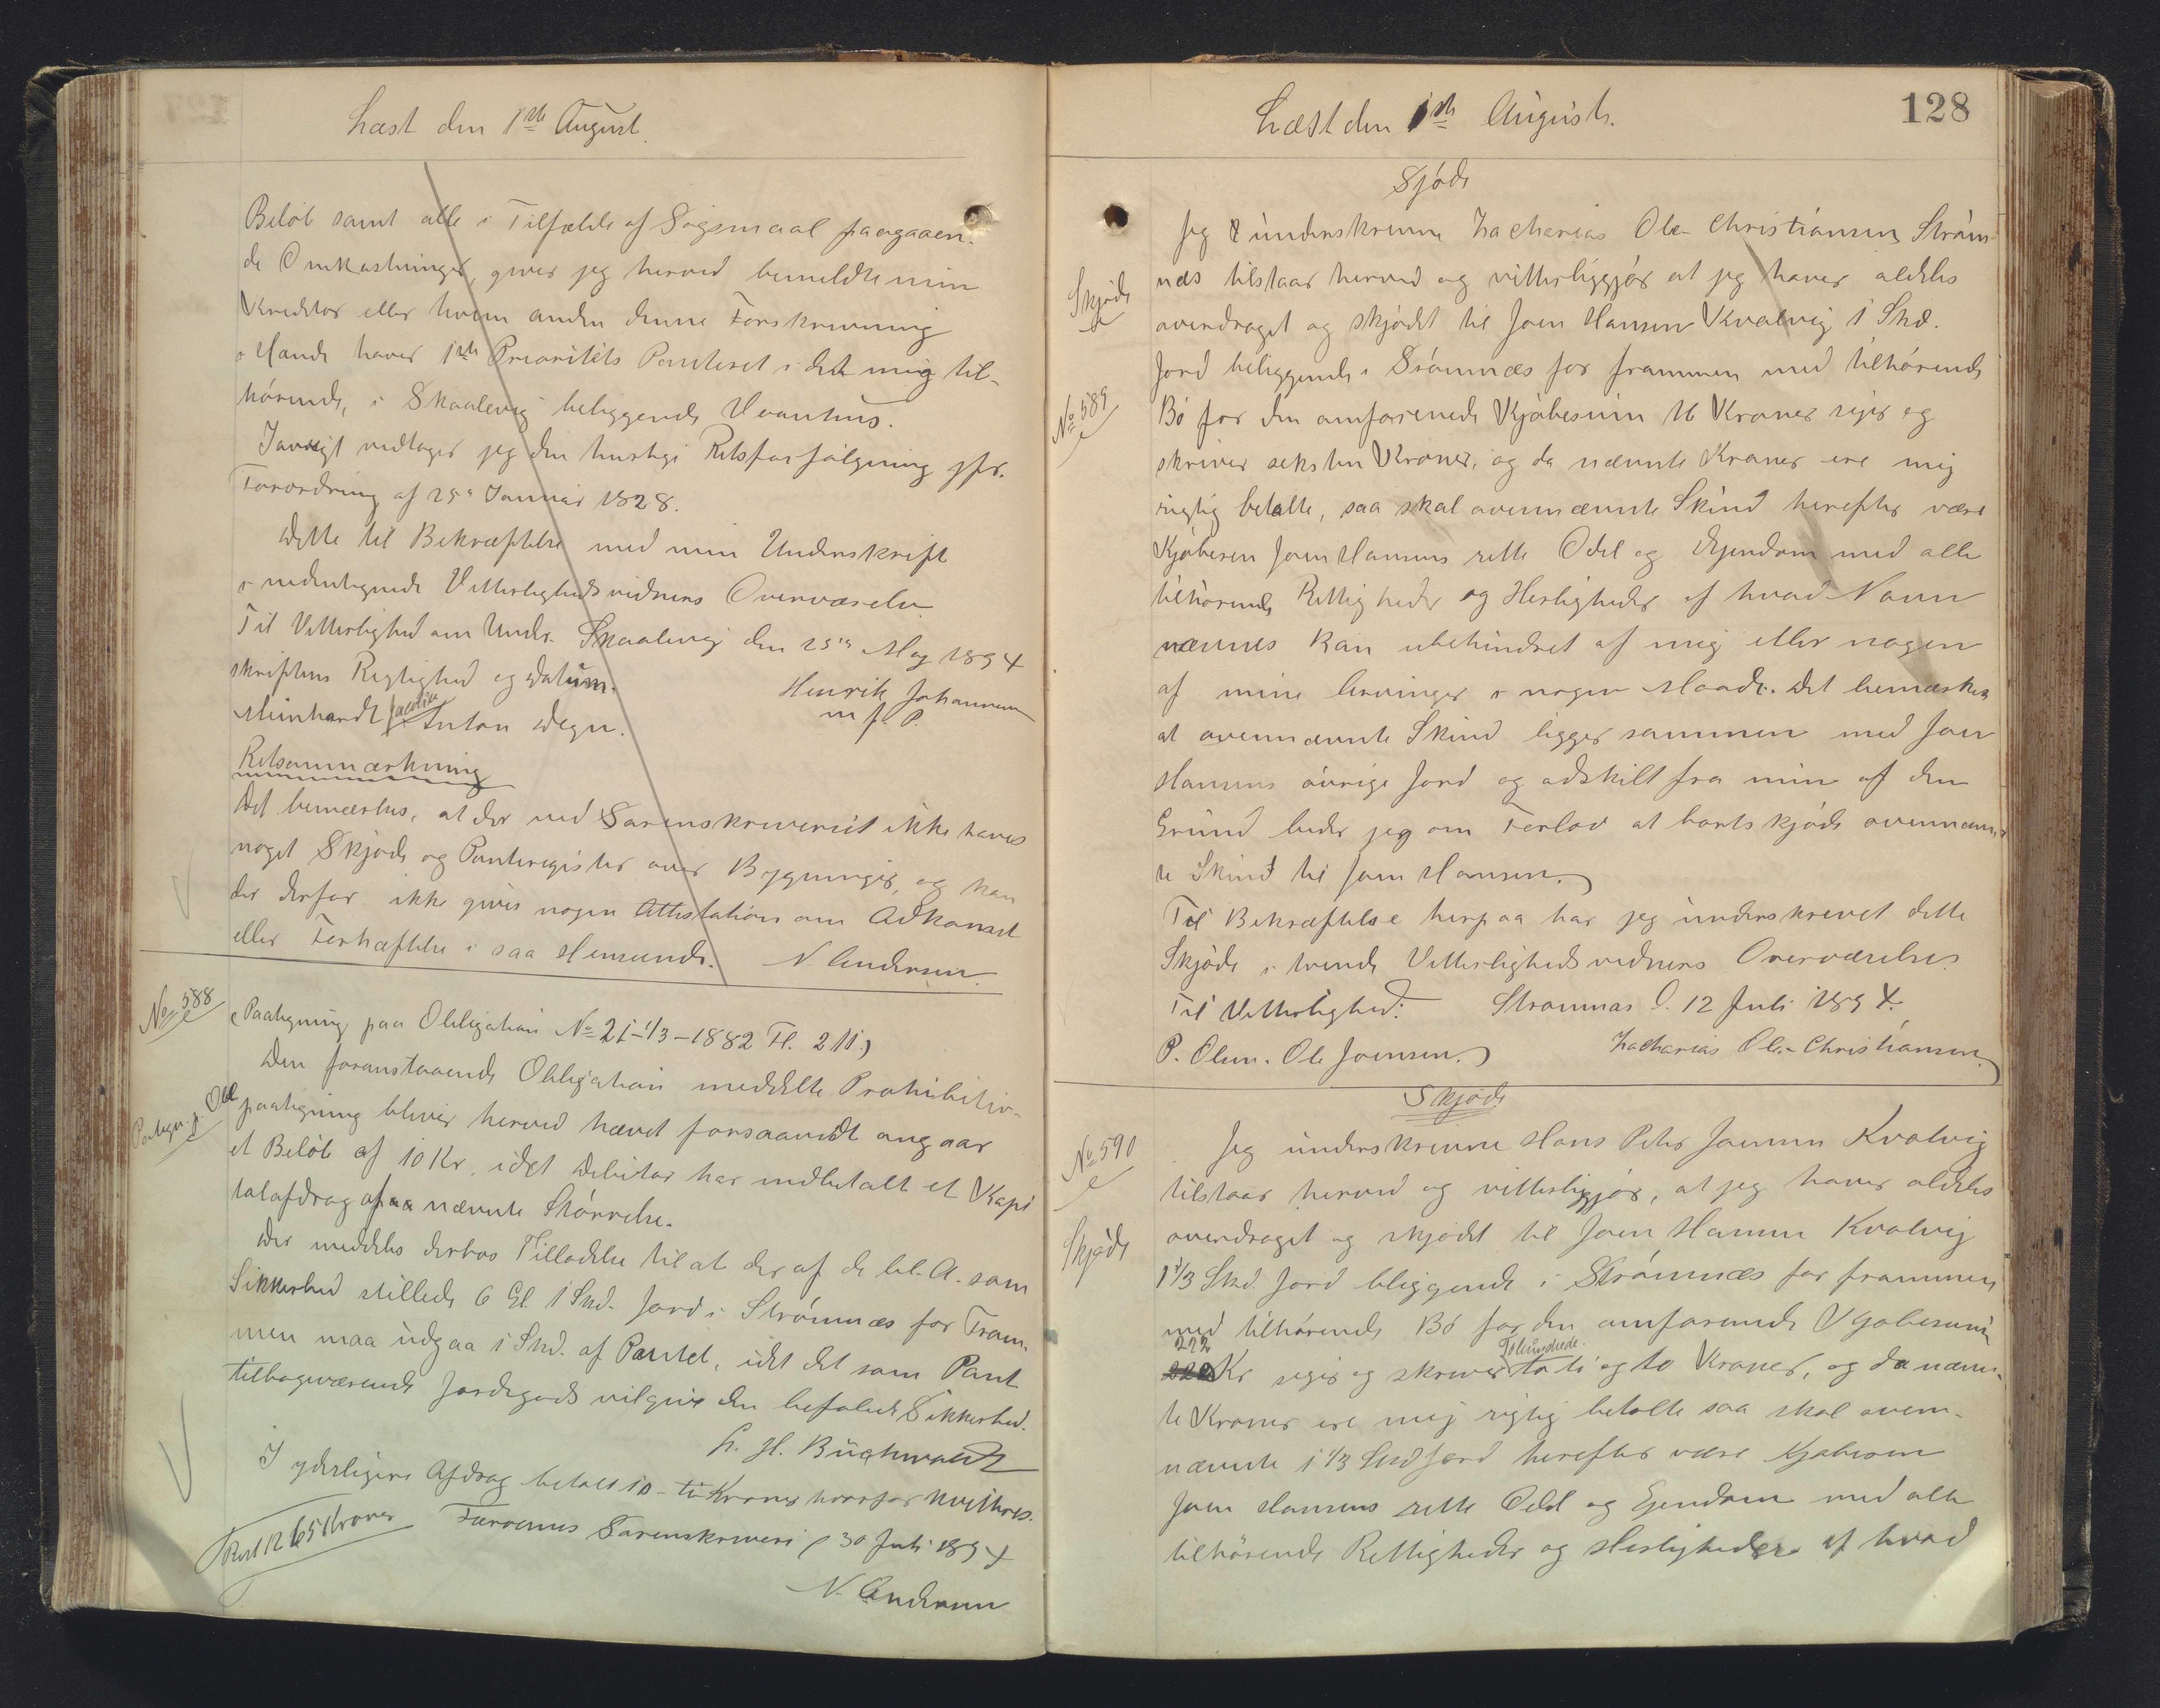 Læst den 1ste August.
Beløb samt alle i Tilfælde af Søgsmaal paagaaen-
de Omkostninger, giver jeg herved bemeldte min
Kreditor eller hvem anden denne Forskrivning
i Hænde haver 1ste Prioritets Panteret i det mig til-
hørende, i Skaalevig beliggende Vaanhus.
Iøvrigt vedtager jeg den hurtige Retsforfølgning jfr.
Forordning af 25de Januar 1828.
Dette til Bekræftelse med min Underskrift
i nedentegnede Vitterlighedsvidners Overværelse
Til Vitterlighed om Under- Skaalevig den 25de Maj 1894
skriftens Rigtighed og Datum. Henrik Johannesen
Meinhardt Jacobsen Anton Degn. m. f. P.
Retsanmærkning
Det bemærkes, at der ved Sorenskriveriet ikke haves
noget Skjøde og Panteregister over Bygninger, og kan
der derfor ikke gives nogen Attestation om Adkomst
eller Forhæftelse i saa Henseende. N. Andersen.
No 588
(Paategning paa Obligation No 21-1/3-1882 Fl. 211.)
Den foranstaaende Obligation meddelte Prohibitiv-
Paategn. p. Obl
paategning bliver herved hævet forsaavidt angaar
et Beløb af 10 Kr. idet Debitor har indbetalt et Kapi
talafdrag af nævnte Størrelse.
Der meddeles derhos Tilladelse til at der af de lit. A. som
Sikkerhed stillede 6 Gl. 1 Skd. Jord i Strømnæs for Fram-
men maa udgaa 1 Skd. af Pantet, idet det som Pant
tilbageværende Jordegods vil give den befalede Sikkerhed.
L. H. Buchwaldt
I yderligere Afdrag betalt 10 - ti Kroner hvorfor kvitteres.
Rest R 65 Kroner Færøernes Sorenskriveri 30 Juli 1894
N. Andersen
Læst den 1ste August.
128
Sjøde
Jeg underskrevne Zacharias Ole Christiansen Strøm-
næs tilstaar herved og vitterliggjør at jeg haver aldeles
Skjøde
overdraget og skjødet til Joen Hansen Kvalvig 1 Skd.
Jord beliggende i Strømnæs for frammen med tilhørende
No 589
Bø for den omforenede Kjøbesum 16 Kroner siger og
skriver seksten Kroner, og da nævnte Kroner ere mig
rigtig betalte, saa skal ovennævnte Skind herefter være
Kjøberen Joen Hansens rette Odel og Ejendom med alle
tilhørende Rettigheder og Herligheder af hvad Navn
nævnes kan ubehindret af mig eller nogen
af mine Arvinger i nogen Maade. Det bemærkes
at ovennævnte Skind ligger sammen med Joen
Hansens øvrige Jord og adskilt fra min af den
Grund beder jeg om Forlov at bortskjøde ovennævn-
te Skind til Joen Hansen.
Til Bekræftelse herpaa har jeg underskrevet dette
Skjøde i tvende Vitterlighedsvidners Overværelse.
Til Vitterlighed: Strømnæs d. 12 Juli 1894.
P. Olsen. Ole Joensen. Zacharias Ole Christiansen.
Skjøde
No 590
Jeg underskrevne Hans Peter Joensen Kvalvig
tilstaar herved og vitterliggjør, at jeg haver aldeles
Skjøde
overdraget og skjødet til Joen Hansen Kvalvig
1 1/3 Skd. Jord bliggende i Strømnæs for frammen
med tilhørende Bø for den omforenede Kjøbesum
222
Tohundrede
Kr siger og skriver to ti og to Kroner, og da nævn-
te Kroner ere mig rigtig betalte saa skal oven-
nævnte 1 1/3 Skd Jord herefter være Kjøberen
Joen Hansens rette Odel og Ejendom med alle
tilhørende Rettigheder og Herligheder af hvad